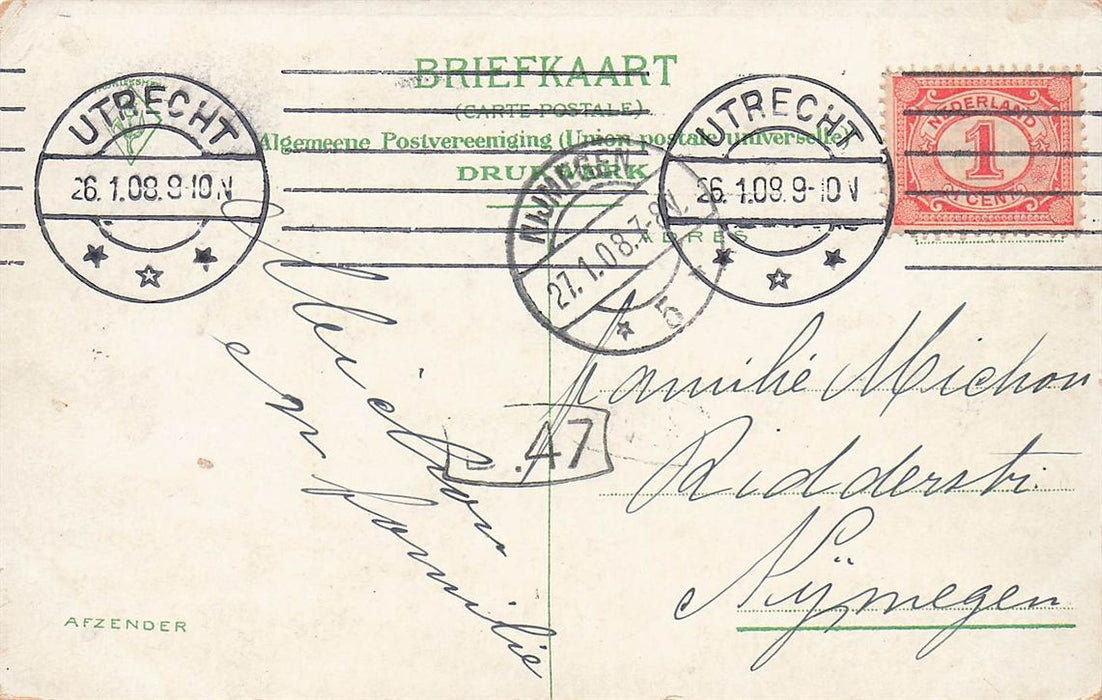 BRIEFKAART
(CARTE POSTALE)
Algemeene Postvereeniging (Union postale universelle)
DRUKWERK
ADRES
UTRECHT
26.1.08.9-10N
UTRECHT
26.1.08.9-10N
NIJMEGEN
27.1.08.7-8V.
5
NEDERLAND
1
CENT
47
Familie Michon
Ridderstr.
Nijmegen
en familie
AFZENDER